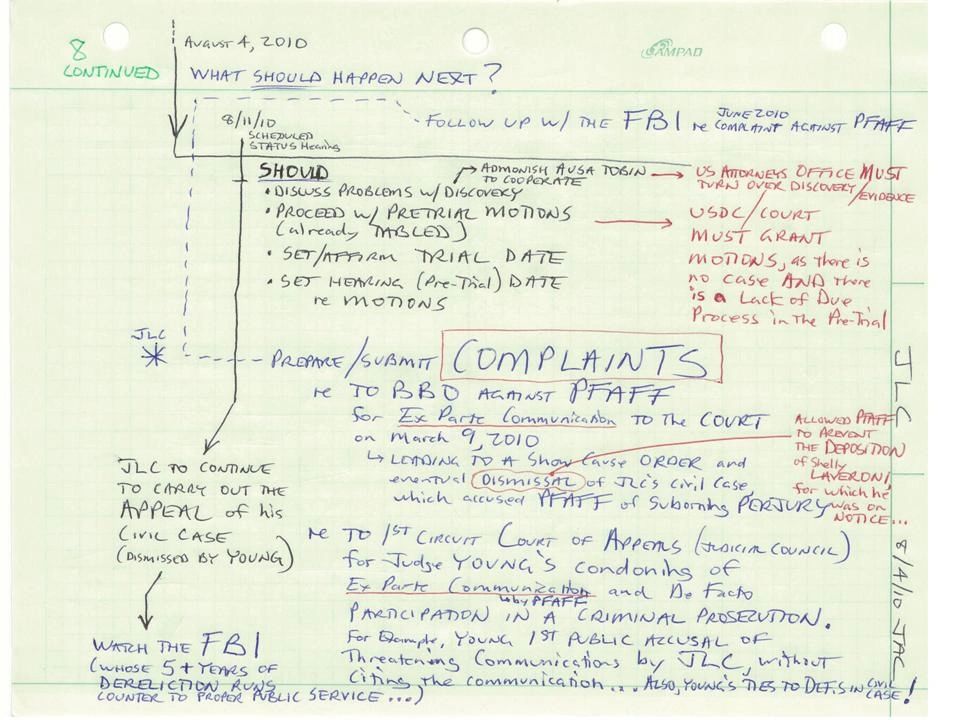 8
CONTINUED
AUGUST 4, 2010
AMPAD
WHAT SHOULD HAPPEN NEXT?
FOLLOW UP W/ THE FBI re JUNE 2010 COMPLAINT AGAINST PFAFF
8/11/10
SCHEDULED
STATUS Hearing
SHOULD
• DISCUSS PROBLEMS W/ DISCOVERY
ADMONISH AUSA TOBIN
TO COOPERATE
US ATTORNEYS OFFICE MUST
TURN OVER DISCOVERY/EVIDENCE
• PROCEED W/ PRETRIAL MOTIONS
(already TABLED)
• SET/AFFIRM TRIAL DATE
• SET HEARING (Pre-Trial) DATE
re MOTIONS
USDC/COURT
MUST GRANT
MOTIONS, as there is
no case AND there
is a Lack of Due
Process in the Pre-Trial
JLC
PREPARE/SUBMIT COMPLAINTS
re TO BBO AGAINST PFAFF
for Ex Parte Communication TO THE COURT
on March 9, 2010
↳ LEADING TO A Show Cause ORDER and
eventual DISMISSAL of JLC's civil Case,
which accused PFAFF of Suborning PERJURY
ALLOWED PFAFF
TO PREVENT
THE DEPOSITION
of Shelly
LAVERONI,
for which he
was on
NOTICE...
re TO 1ST CIRCUIT COURT OF APPEALS (JUDICIAL COUNCIL)
for Judge YOUNG'S condoning of
Ex Parte Communication and De Facto
↳ by PFAFF
PARTICIPATION IN A CRIMINAL PROSECUTION.
For Example, YOUNG 1ST PUBLIC ACCUSAL OF
Threatening Communications by JLC, without
Citing the communication... ALSO, YOUNG'S TIES TO DEF.S IN CIVIL CASE!
JLC TO CONTINUE
TO CARRY OUT THE
APPEAL of his
CIVIL CASE
(DISMISSED BY YOUNG)
WATCH THE FBI
(WHOSE 5+ YEARS OF
DERELICTION RUNS
COUNTER TO PROPER PUBLIC SERVICE ...)
JLC 8/4/10 JAC